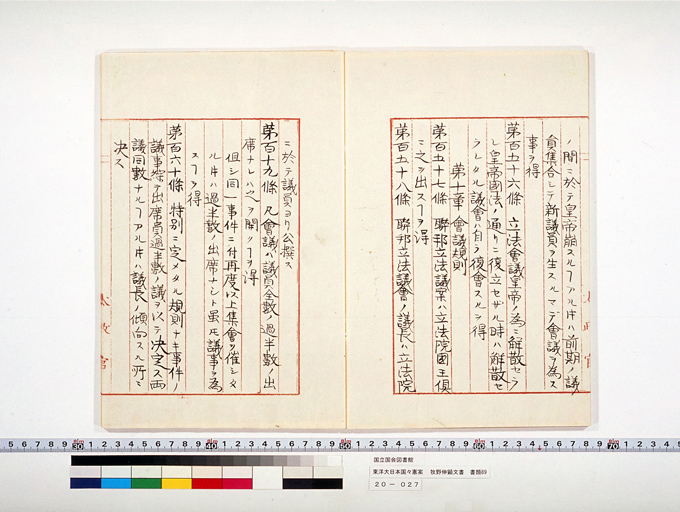 ノ間ニ於テ皇帝崩スルヿアル片ハ前期ノ議
員集合シテ新議員ヲ生スルマデ會議ヲ為ス
事ヲ得
第百五十六條 立法會議皇帝ノ為ニ解散セラ
レ皇帝國法ノ通リニ復立セザル時ハ解散セ
ラレタル議會ハ自ラ復會スルヲ得
第十章 會議規則
第百五十七條 聯邦立法議案ハ立法院國王俱
ニ之ヲ出スヿヲ得
第百五十八條 聯邦立法議會ノ議長ハ立法院
太政官
ニ於テ議員ヨリ公撰ス
第百五十九條 凡會議ハ議員全數ノ過半數ノ出
席ナレハ之ヲ開クヿヲ得
但シ同一事件ニ付再度以上集會ヲ催シタ
ル片ハ過半數ノ出席ナシト虽モ議事ヲ為
スヿヲ得
第百六十條 特別ニ定メタル規則ナキ事件ノ
議事綜テ出席員過半數ノ議ヲ以テ決定ス両
議同數ナルヿアル片ハ議長ノ傾向スル所ニ
決ス
太政官
国立国会図書館
東洋大日本国々憲案 牧野伸顕文書 書類89
20-027